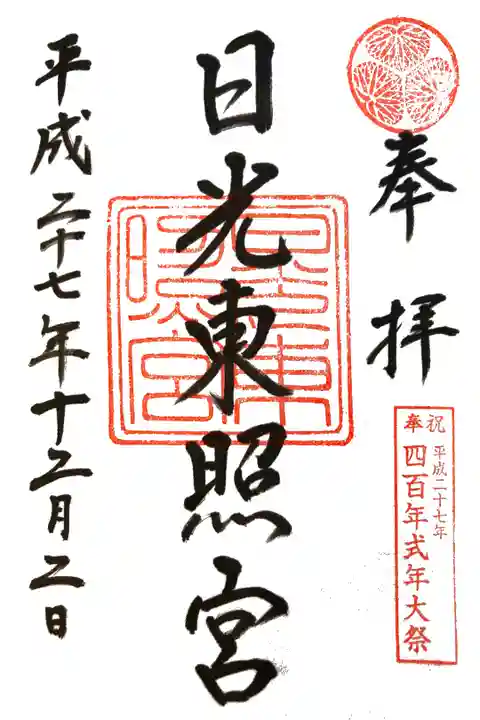 奉拝
奉祝
平成二十七年
四百年式年大祭
日光東照宮
平成二十七年十二月二日